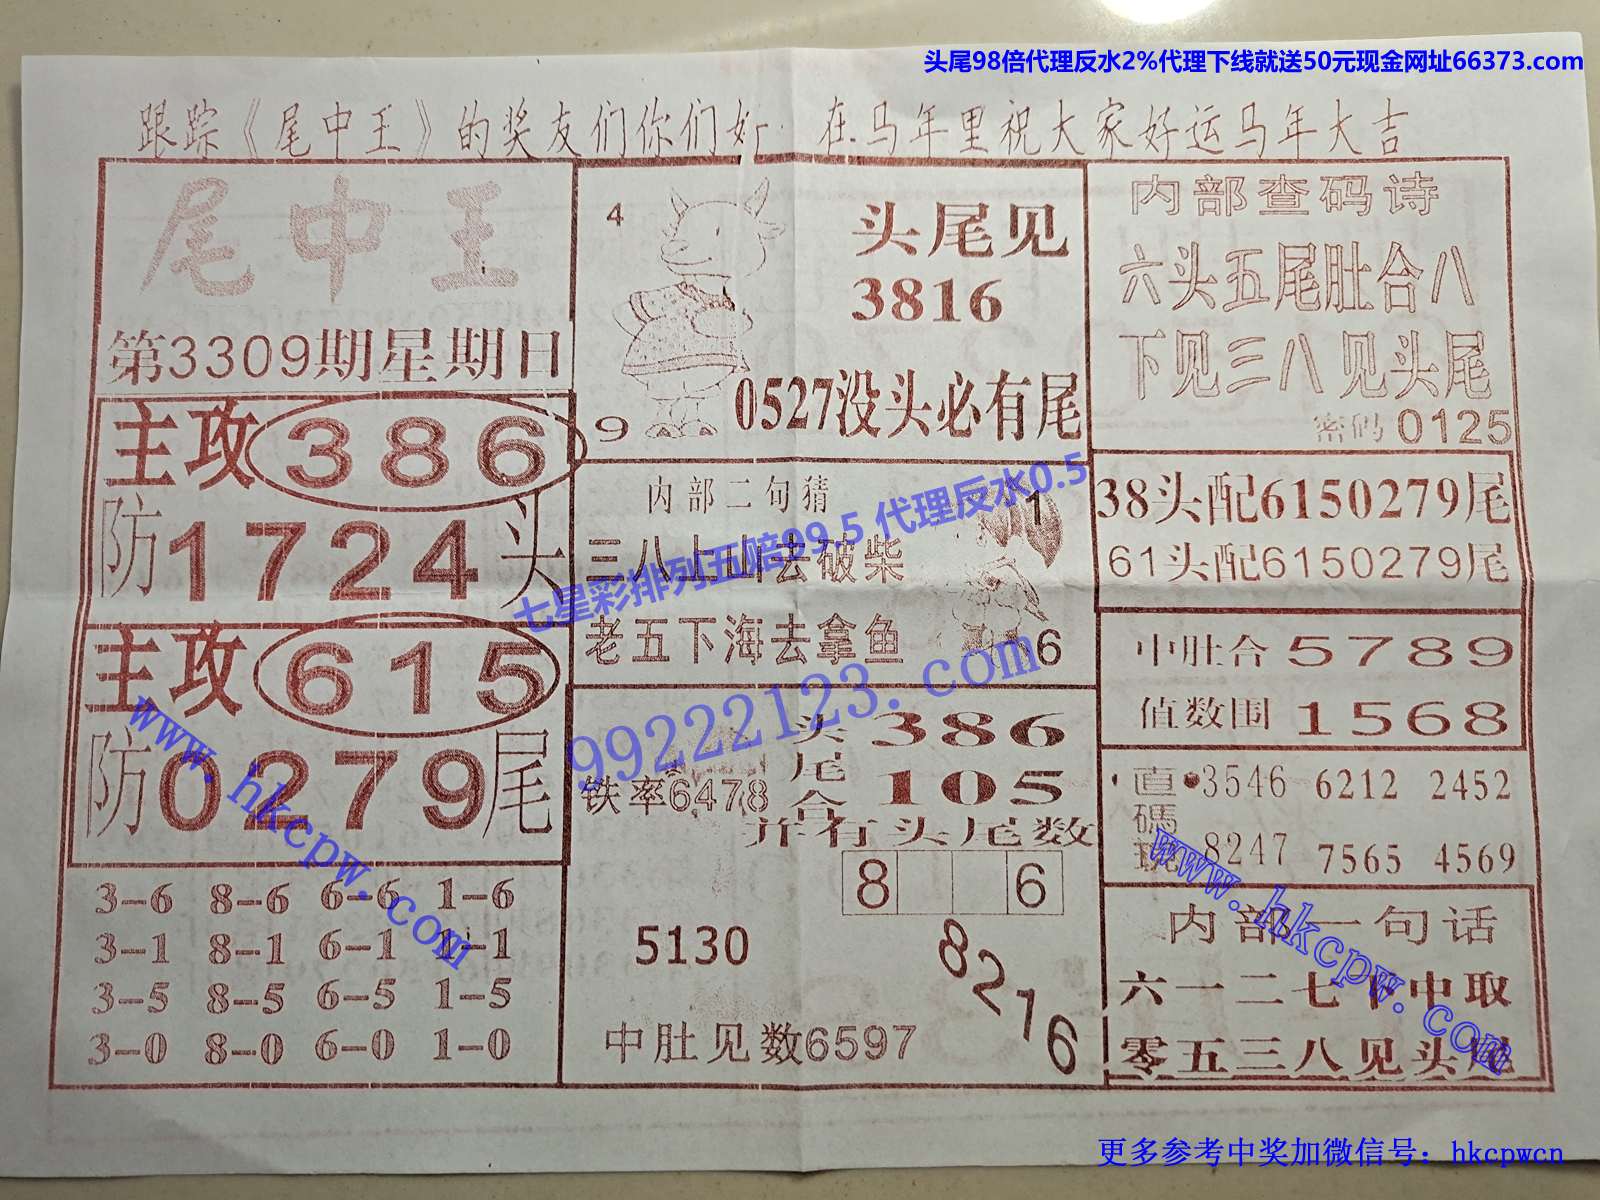 头尾98倍代理反水2%代理下线就送50元现金网址66373.com
跟踪《尾中王》的奖友们你们好 在马年里祝大家好运马年大吉
尾中王
第3309期星期日
主攻386
防1724头
主攻615
防0279尾
3-6 8-6 6-6 1-6
3-1 8-1 6-1 1-1
3-5 8-5 6-5 1-5
3-0 8-0 6-0 1-0
4
头尾见
3816
9
0527没头必有尾
内部二句猜
1
三八上山去破柴
老五下海去拿鱼
6
七星彩排列五赔99.5 代理反水0.5
99222123.com
铁率6478
头386
尾
合105
并有头尾数
8 6
5130
8216
中肚见数6597
内部查码诗
六头五尾肚合八
下见三八见头尾
密码0125
38头配6150279尾
61头配6150279尾
中肚合5789
值数围1568
直碼
3546 6212 2452
8247 7565 4569
内部一句话
六一二七下中取
零五三八见头尾
www.hkcpw.com
www.hkcpw.com
更多参考中奖加微信号：hkcpwcn